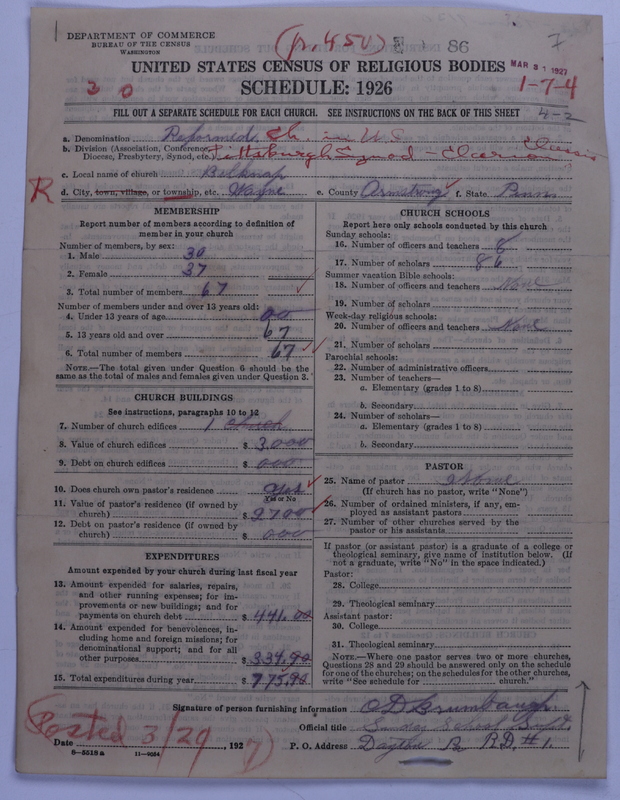 (p. 450) 86 7
DEPARTMENT OF COMMERCE
BUREAU OF THE CENSUS
WASHINGTON
MAR 31 1927
UNITED STATES CENSUS OF RELIGIOUS BODIES
3 0 SCHEDULE: 1926 1-7-4
FILL OUT A SEPARATE SCHEDULE FOR EACH CHURCH. SEE INSTRUCTIONS ON THE BACK OF THIS SHEET 4-2
a. Denomination Reformed Ch. in U S
b. Division (Association, Conference, Diocese, Presbytery, Synod, etc.) Pittsburgh Synod - Clarion Classis
c. Local name of church Belknap
R d. City, town, village, or township, etc. Wayne e. County Armstrong f. State Penn
MEMBERSHIP
Report number of members according to definition of
member in your church
Number of members, by sex:
1. Male 30
2. Female 37
3. Total number of members 67
Number of members under and over 13 years old:
4. Under 13 years of age 00
5. 13 years old and over 67
6. Total number of members 67
NOTE.—The total given under Question 6 should be the
same as the total of males and females given under Question 3.
CHURCH BUILDINGS
See instructions, paragraphs 10 to 12
7. Number of church edifices 1 church
8. Value of church edifices $ 3000
9. Debt on church edifices $ 000
10. Does church own pastor's residence Yes
Yes or No
11. Value of pastor's residence (if owned by
church) $ 2700
12. Debt on pastor's residence (if owned by
church) $ 000
EXPENDITURES
Amount expended by your church during last fiscal year
13. Amount expended for salaries, repairs,
and other running expenses; for im-
provements or new buildings; and for
payments on church debt $ 441.00
14. Amount expended for benevolences, in-
cluding home and foreign missions; for
denominational support; and for all
other purposes $ 334.90
15. Total expenditures during year $ 775.90
CHURCH SCHOOLS
Report here only schools conducted by this church
Sunday schools:
16. Number of officers and teachers 8
17. Number of scholars 86
Summer vacation Bible schools:
18. Number of officers and teachers None
19. Number of scholars
Week-day religious schools:
20. Number of officers and teachers None
21. Number of scholars
Parochial schools:
22. Number of administrative officers
23. Number of teachers—
a. Elementary (grades 1 to 8)
b. Secondary
24. Number of scholars—
a. Elementary (grades 1 to 8)
b. Secondary
PASTOR
25. Name of pastor None
(If church has no pastor, write "None")
26. Number of ordained ministers, if any, em-
ployed as assistant pastors
27. Number of other churches served by the
pastor or his assistants
If pastor (or assistant pastor) is a graduate of a college or
theological seminary, give name of institution below. (If
not a graduate, write "No" in the space indicated.)
Pastor:
28. College
29. Theological seminary
Assistant pastor:
30. College
31. Theological seminary
NOTE.—Where one pastor serves two or more churches,
Questions 28 and 29 should be answered only on the schedule
for one of the churches; on the schedules for the other churches,
write "See schedule for church."
Signature of person furnishing information O D Brumbaugh
Official title Sunday School Supt.
(Posted 3/29
Date 1927) P. O. Address Dayton Pa RD. #1.
6-5518a 11-9024